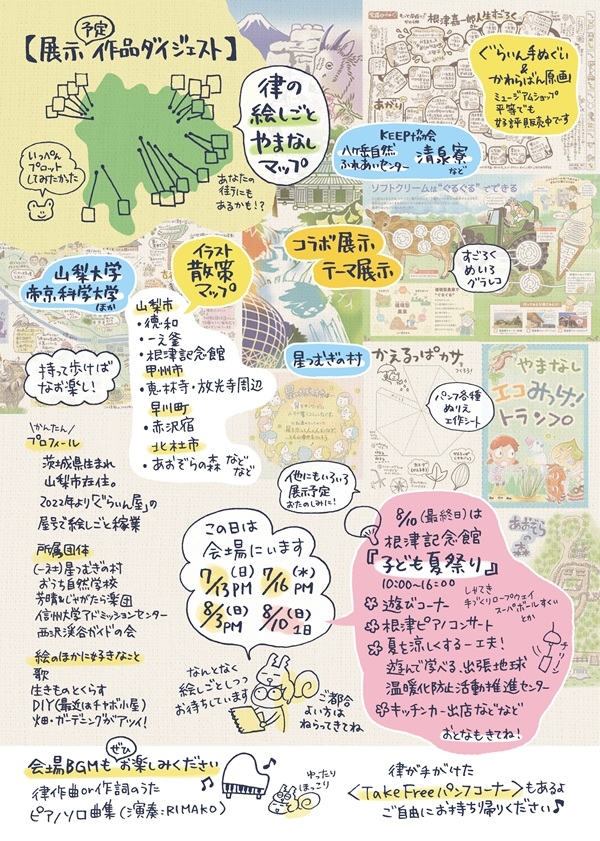 【展示予定作品ダイジェスト】
律の
絵しごと
やまなし
マップ
いっぺん
プロット
してみたかった
あなたの
街にも
あるかも!?
根津嘉一郎人生すごろく
あがり
ぐらいん手ぬぐい
&
かわらばん原画
ミュージアムショップ
平等でも
好評販売中です
KEEP協会
八ヶ岳自然
ふれあいセンター
清泉寮
など
ソフトクリームは"ぐるぐる"でできる
すごろく
めいろ
グラレコ
山梨大学
帝京科学大学
ほか
イラスト
散策
マップ
コラボ展示
テーマ展示
持って歩けば
なお楽し!
山梨市
・徳和
・一之釜
・根津記念館
甲州市
・恵林寺・放光寺周辺
早川町
・赤沢宿
北杜市
・あおぞらの森 などなど
星つむぎの村
かえるっぱカサ
パンフ各種
ぬりえ
工作シート
やまなし
エコみっけ!
トランプ
あおぞらの
森
\かんたん/
プロフィール
茨城県生まれ
山梨市在住。
2022年より「ぐらいん屋」の
屋号で絵しごと稼業
所属団体
(一社)星つむぎの村
おうち自然学校
芳晴&じゃがたら楽団
信州大学アドミッションセンター
西沢渓谷ガイドの会
絵のほかに好きなこと
歌
生きものとくらす
DIY(最近はチャボ小屋)
畑・ガーデニングがアツイ!
他にもいろいろ
展示予定
おたのしみに!
この日は
会場にいます
7/13(日)PM
7/16(水)PM
8/3(日)PM
8/10(日)1日
なんとなく
絵しごとしつつ
お待ちしています
ご都合
よい方は
ねらってきてね
8/10(最終日)は
根津記念館
『子ども夏祭り』
10:00~16:00
遊びコーナー
しゃてき
手づくりロープウェイ
スーパーボールすくい
とか
根津ピアノコンサート
夏を涼しくする一工夫!
遊んで学べる、出張地球
温暖化防止活動推進センター
キッチンカー出店などなど
おとなもきてね!
チリーン
会場BGMもぜひお楽しみください
律作曲or作詞のうた
ピアノソロ曲集(演奏:RIMAKO)
ゆったり
ほっこり
律が手がけた
<Take Freeパンフコーナー>もあるよ
ご自由にお持ち帰りください♪